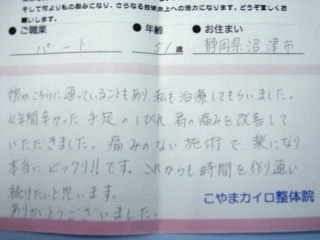 そして何より私の励みになり、さらなる技術向上への活力になります。どうぞ宜しくお
願いします。
●ご職業 ●年齢 ●お住まい
パート 51歳 静岡県沼津市
娘がこちらに通っていることもあり、私も治療してもらいました。
4年間辛かった手足のしびれ、肩の痛みを改善して
いただきました。痛みのない施術で楽になり
本当にビックリ!!です。これからも時間を作り通い
続けたいと思います。
ありがとうございました。
こやまカイロ整体院